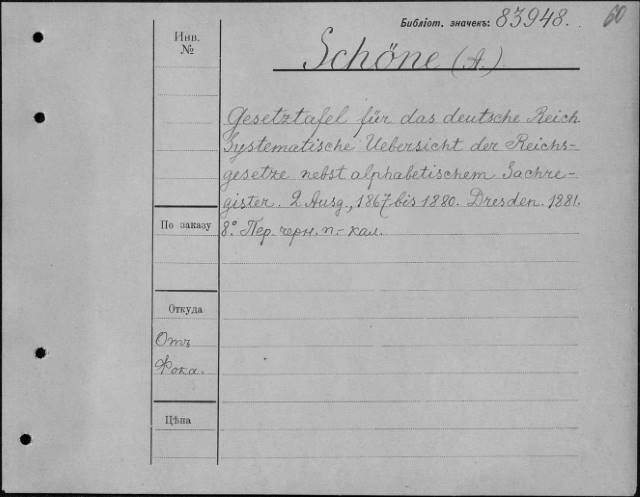 Библіот. значекъ: 83948.
60
Инв.
№
Schöne (A.)
Gesetztafel für das deutsche Reich
Systematische Uebersicht der Reichs-
gesetze nebst alphabetischem Sachre-
gister. 2 Ausg., 1867 bis 1880. Dresden. 1881.
8° Пер. черн. п.-кал.
По заказу
Откуда
Отъ
Фока.
Цѣна